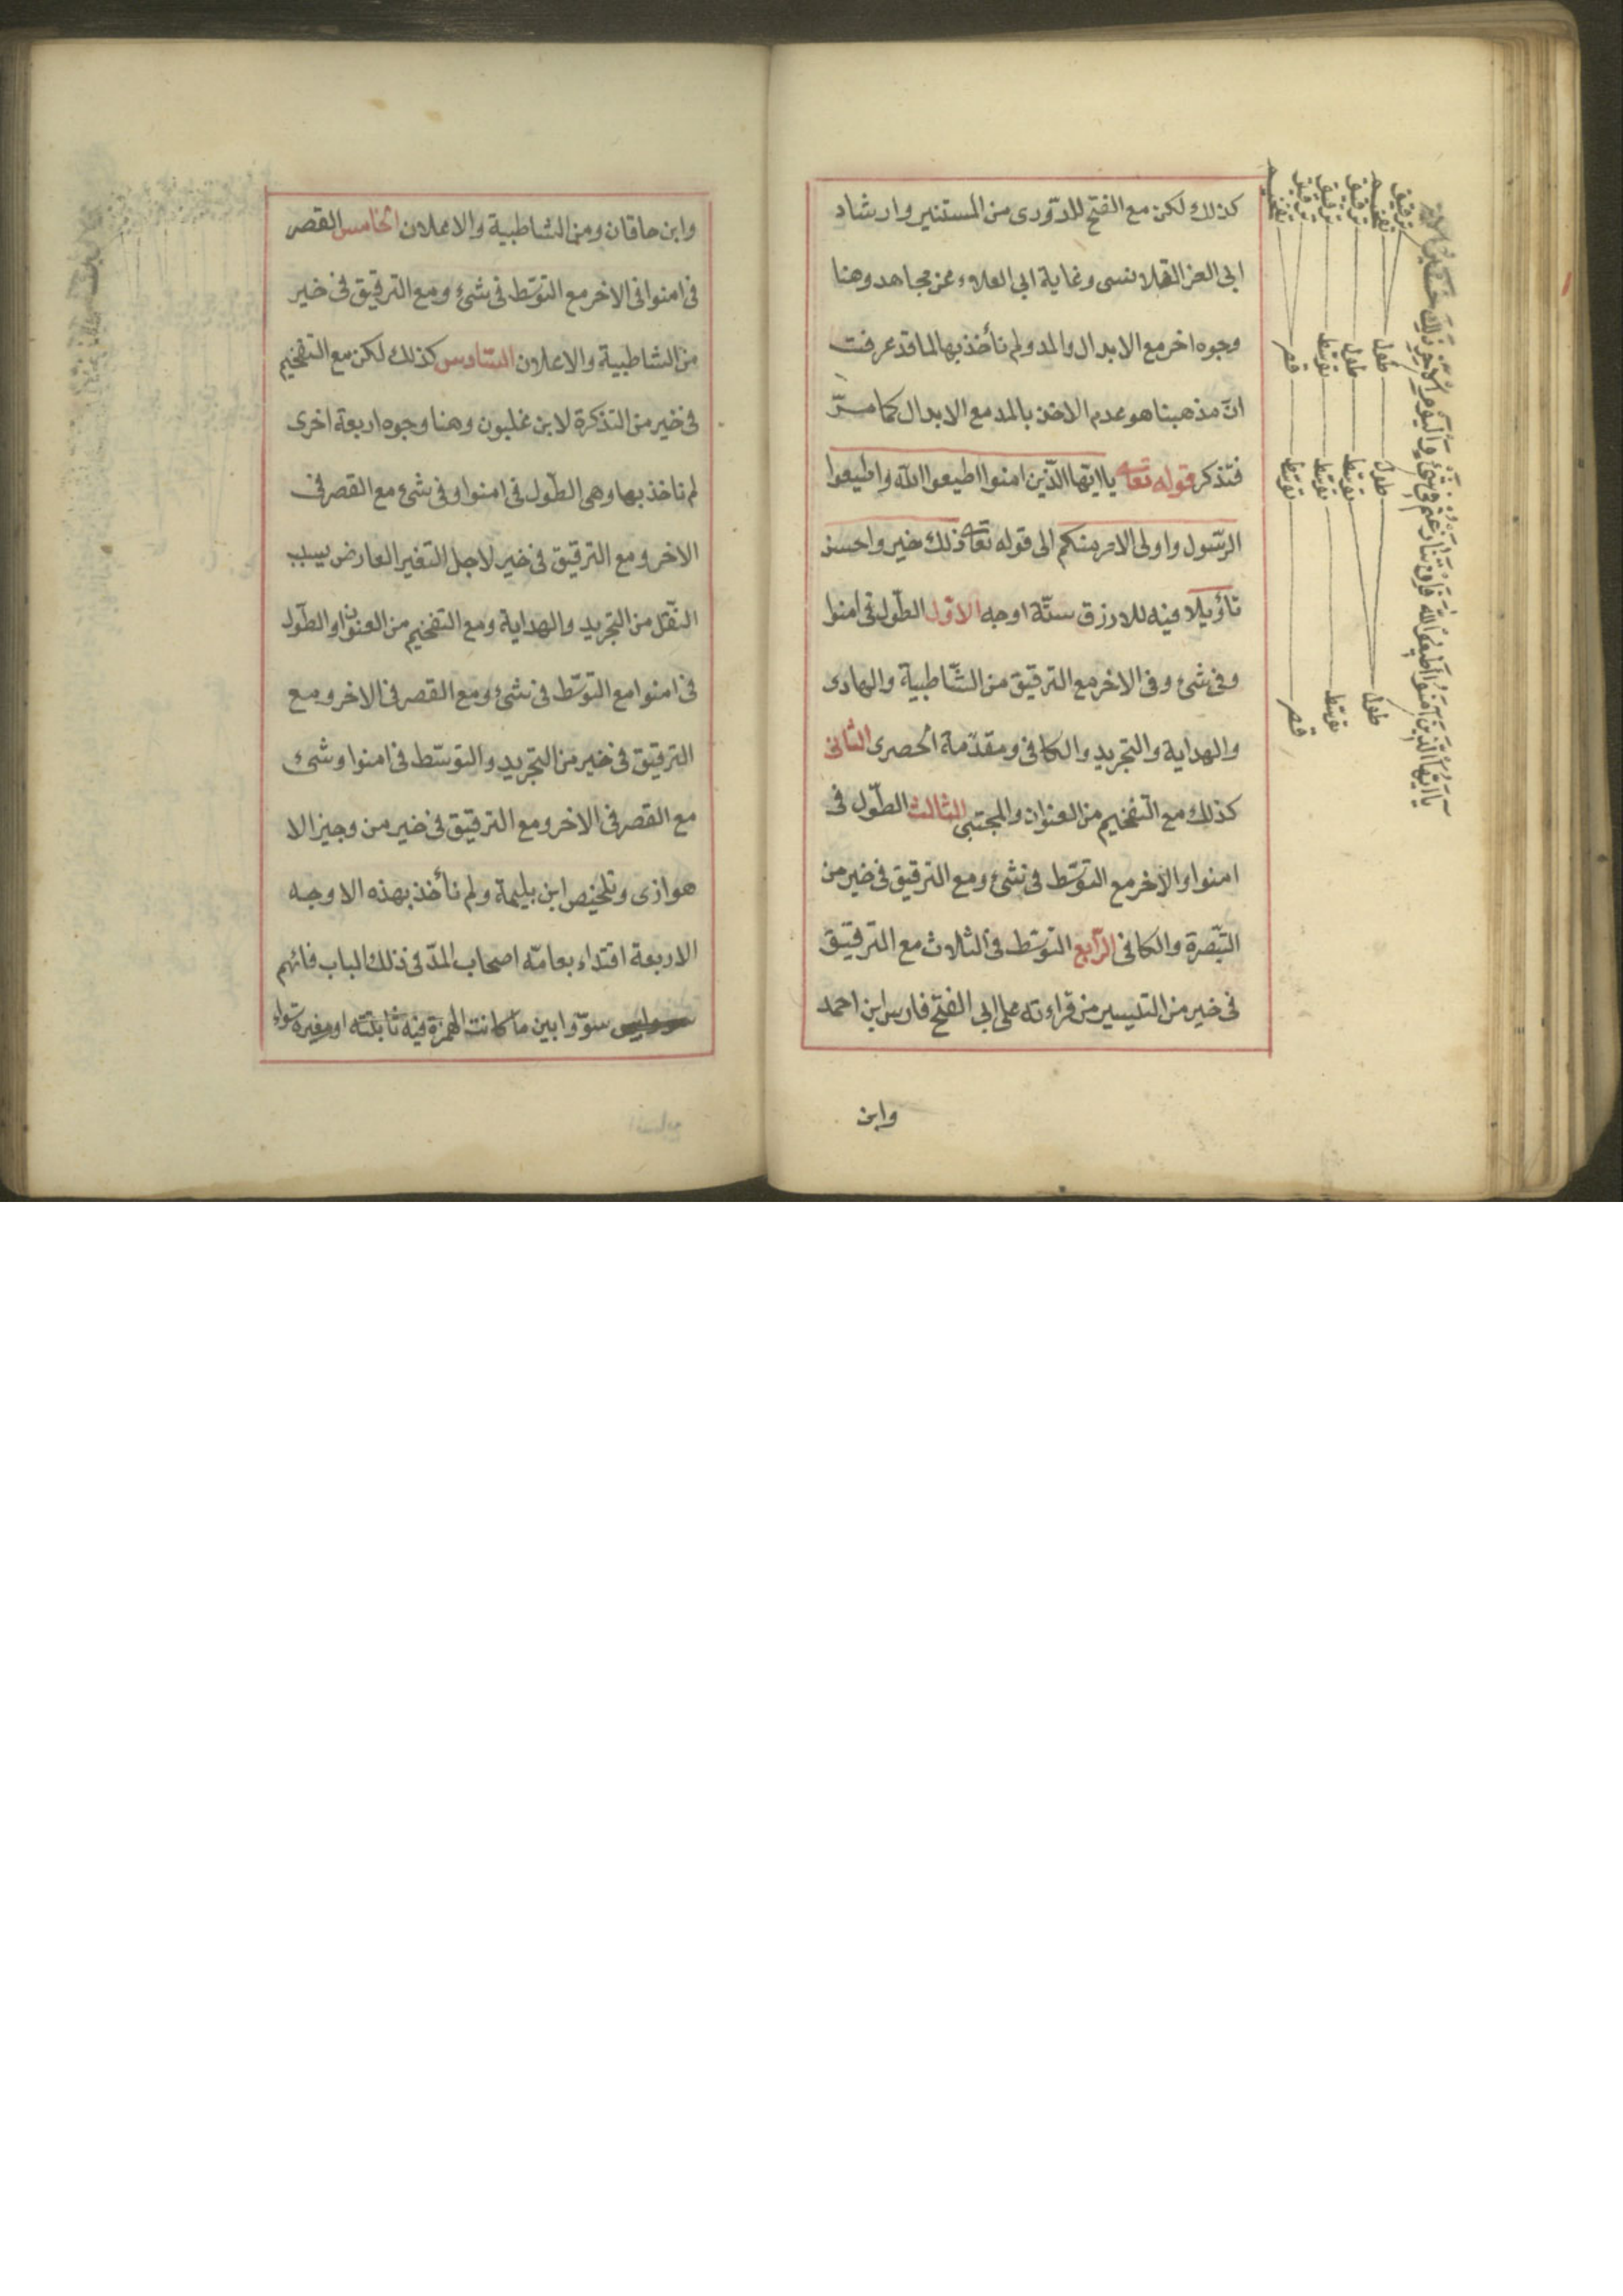 كذلك لكن مع الفتح للدّورى من المستنير وارشاد
ابى العز القلانسى وغاية ابى العلاء عن مجاهد وهنا
وجوه اخر مع الابدال والمد ولم نأخذ بها لما قد عرفت
انّ مذهبنا هو عدم الاخذ بالمد مع الابدال كما مرّ
فتذكر قوله تعالى ياايّها الّذين امنوا اطيعوا اللّه واطيعوا
الرّسول واولى الامر منكم الى قوله تعالى ذلك خير واحسن
تاؤيلا فيه للازرق ستّة اوجه الاوّل الطّول فى امنوا
وفى شئ وفى الاخر مع الترقيق من الشّاطبية والهادى
والهداية والتجريد والكافى ومقدّمة الحصرى الثانى
كذلك مع التفخيم من العنوان والمجتبى الثالث الطّول فى
امنوا والاخر مع التوسّط فى شئ ومع الترقيق فى خير من
التبصرة والكافى الرّابع التوسّط فى الثلاث مع الترقيق
فى خير من التيسير من قراءته على ابى الفتح فارس ابن احمد
وابن
ياايّها الّذين امنوا اطيعوا اللّه فان تنازعتم فى شئ واليوم الاخر ذلك خير
ترقيق تفخيم ترقيق ترقيق ترقيق تفخيم
طول طول توسّط قصر
طول توسّط توسّط توسّط
طول توسّط قصر
وابن خاقان ومن الشاطبية والاعلان الخامس القصر
فى امنوا فى الاخر مع التوسّط فى شئ ومع الترقيق فى خير
من الشاطبية والاعلان السّادس كذلك لكن مع التفخيم
فى خير من التذكرة لابن غلبون وهنا وجوه اربعة اخرى
لم ناخذ بها وهى الطّول فى امنوا وفى شئ مع القصر فى
الاخر ومع الترقيق فى خير لاجل التغير العارض بسبب
النقل من التجريد والهداية ومع التفخيم من العنوان والطّول
فى امنوا مع التوسّط فى شئ ومع القصر فى الاخر ومع
الترقيق فى خير من التجريد والتوسّط فى امنوا وشئ
مع القصر فى الاخر ومع الترقيق فى خير من وجيز الا
هوازى وتلخيص ابن بليمة ولم نأخذ بهذه الاوجه
الاربعة اقتداء بعامّه اصحاب المدّ فى ذلك الباب فانّهم
سوّوا بين ما كانت الهمزة فيه ثابتته او مغيره سواء